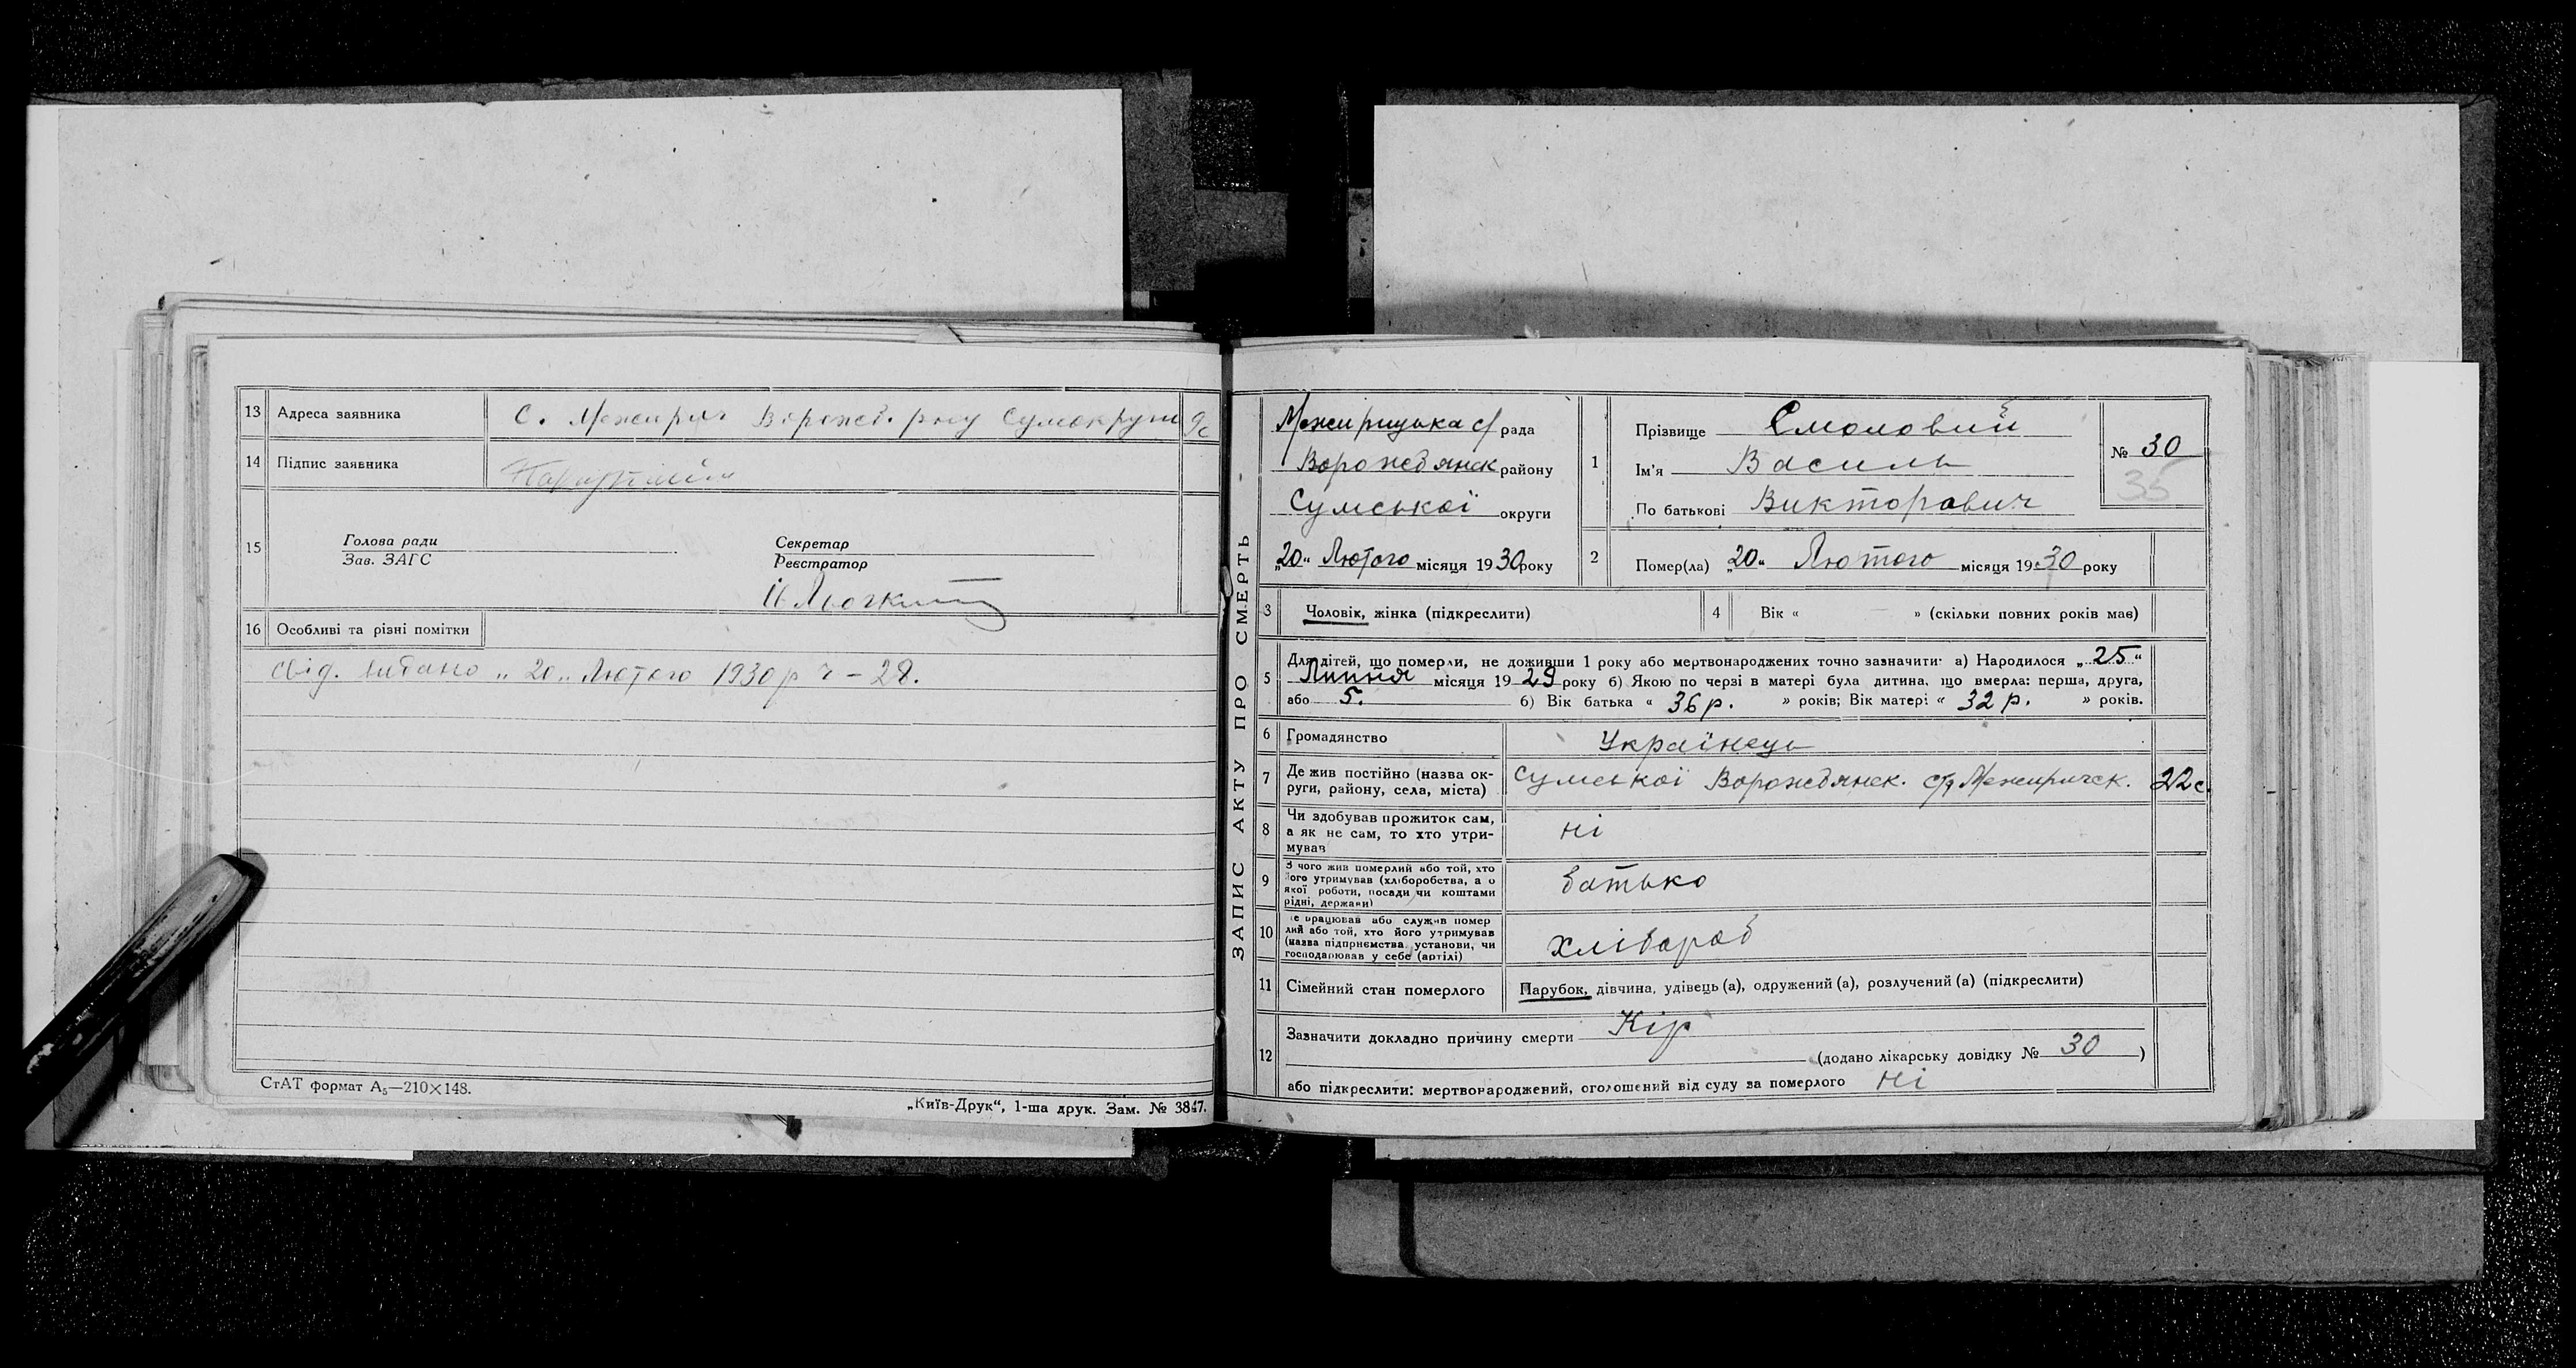 13 Адреса заявника С. Межиріч Ворожб. р-ну Сумокруги
14 Підпис заявника
15 Голова ради
Зав. ЗАГС
Секретар
Реєстратор
16 Особливі та різні помітки
Свід. видано „20„ Лютого 1930 р ч – 28.
СтАТ формат А₅—210×148.
„Київ-Друк“, 1-ша друк. Зам. № 3847.
ЗАПИС АКТУ ПРО СМЕРТЬ
Межиріцька с/ рада
Ворожбянск району
Сумської округи
„20“ Лютого місяця 1930 року
1 Прізвище Смоловий
Ім'я Василь
По батькові Викторович
№ 30
35
2 Помер(ла) „20“ Лютого місяця 1930 року
3 Чоловік, жінка (підкреслити)
4 Вік « — » (скільки повних років мав)
5 Для дітей, що померли, не доживши 1 року або мертвонароджених точно зазначити: а) Народилося „25“
Липня місяця 1929 року б) Якою по черзі в матері була дитина, що вмерла: перша, друга,
або 5. б) Вік батька « 36 р. » років; Вік матері « 32 р. » років.
6 Громадянство Українець
7 Де жив постійно (назва ок-
руги, району, села, міста) Сумської Ворожбянск. с/р Межиричск. 22 с.
8 Чи здобував прожиток сам,
а як не сам, то хто утри-
мував ні
9 З чого жив померлий або той, хто
його утримував (хліборобства, а о
якої роботи, посади чи коштами
рідні, держави) батько
10 е працював або служив помер
лий або той, хто його утримував
(назва підприємства, установи, чи
господарював у себе (артілі) хлібароб
11 Сімейний стан померлого Парубок, дівчина, удівець (а), одружений (а), розлучений (а) (підкреслити)
12 Зазначити докладно причину смерти Кір
(додано лікарську довідку № 30 )
або підкреслити: мертвонароджений, оголошений від суду за померлого ні